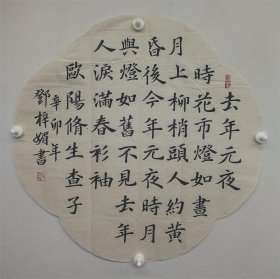 去年元夜
時花市燈如晝
月上柳梢頭人約黃
昏後今年元夜時月
與燈如舊不見去年
人淚滿春衫袖
歐陽脩生查子
辛卯年
鄧梓媚書